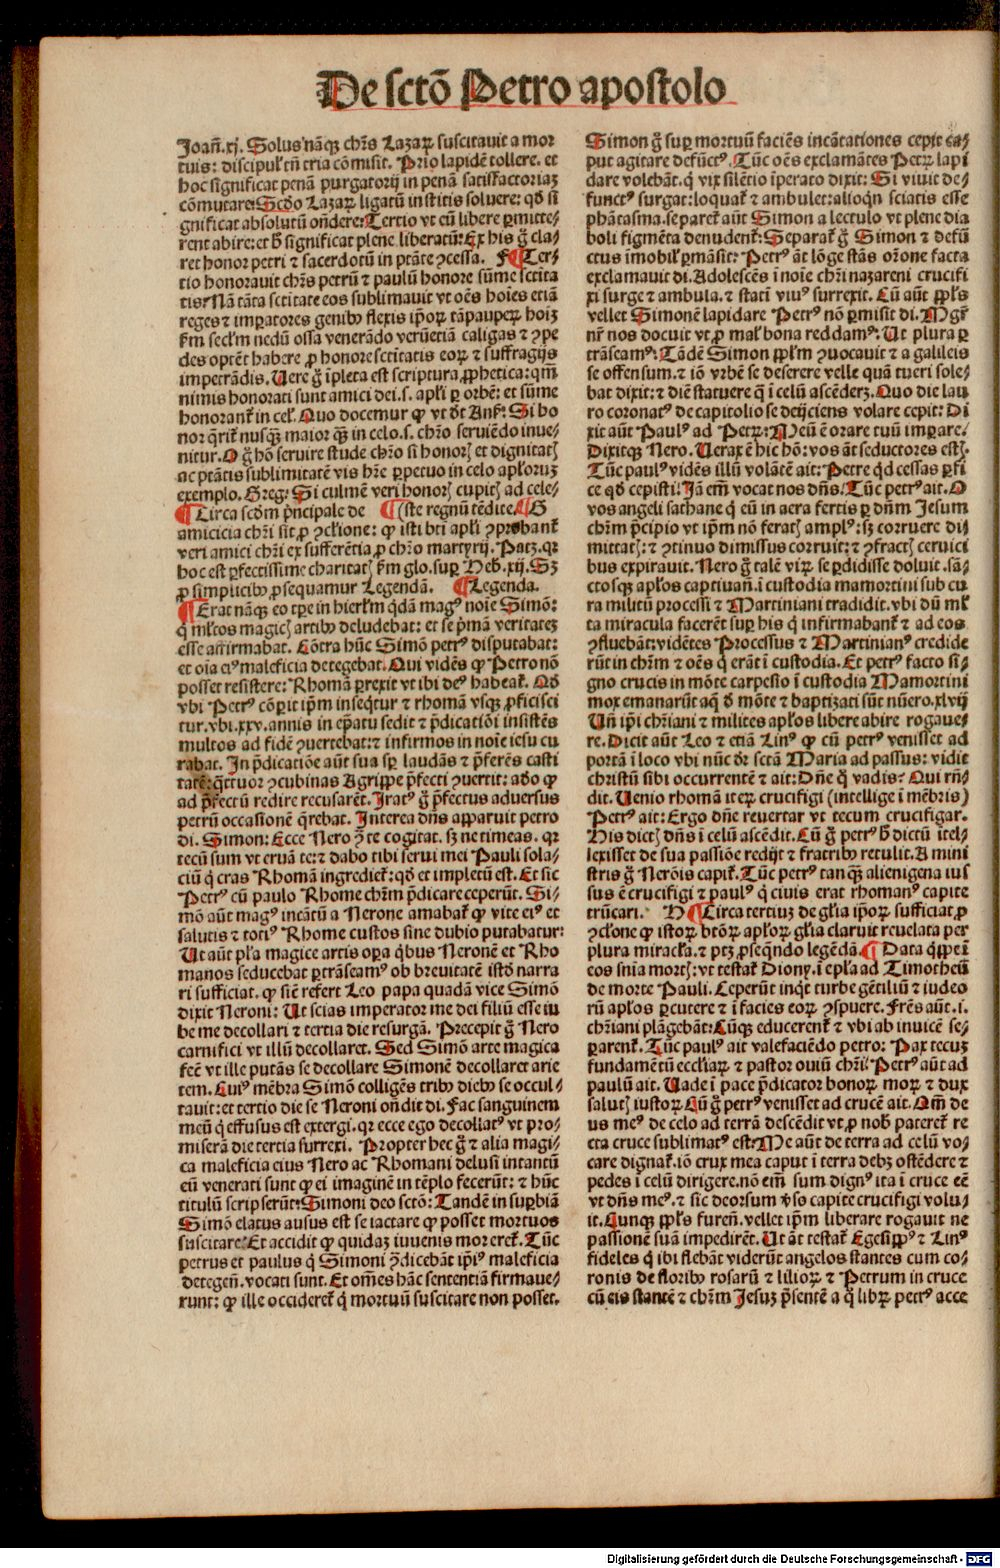 De sctō Petro apostolo
Joañ.xj. Solus nāqꝫ chr̄s Lazarꝝ suscitauit a mor
tuis: discipul' tn̄ tria cōmisit. Prīo lapidē tollere. et
hoc significat penā purgatorij in penā satisfactoriaꝫ
cōmutare: Scd̄o Lazarꝝ ligatū institis soluere: qd̄ si
gnificat absolutū on̄dere: Tertio vt eū libere ꝑmitte-
rent abire: et h̄ significat plene liberatū: Ex his g̊ cla-
ret honor petri ⁊ sacerdotū in ptāte ꝯcessa. F ¶ Ter-
tio honorauit chr̄s petrū ⁊ paulū honore sūme sctita
tis: Nā tāta sctitate eos sublimauit vt oēs hoīes etiā
reges ⁊ imꝑatores genibꝰ flexis ip̄oꝝ tā pauꝑeꝝ hoīꝫ
k̄m secl'm nedū ossa venerādo verūetiā caligas ⁊ ꝯpe
des optēt habere ꝓ honore sctitatis eoꝝ ⁊ suffragijs
impetrādis. Uere g̊ īpleta est scriptura ꝓphetica: qm̄
nimis honorati sunt amici dei.s. apl'i ꝑ orbē: et sūme
honorant̉ in cel'. Quo docemur ꝙ vt dt̄ Ans': Si ho
nor q̄rit̉ nusqꝫ maior qꝫ in celo.s. chr̄o seruiēdo inue-
nitur. O g̊ hō seruire stude chr̄o si honorꝭ et dignitatꝭ
ac ptātis sublimitatē vis hr̄e ꝑpetuo in celo apl'oruꝫ
exemplo. Greg: Si culmē veri honorꝭ cupitꝭ ad cele-
¶ Circa scd̄m pn̄cipale de ¶ (ste regnū tēdite. ¶ G
amicicia chr̄i sit ꝓ ꝯclione: ꝙ isti bt̄i apl'i ꝯprobant̉
veri amici chr̄i ex sufferētia ꝓ chr̄o martyrij. Patꝫ. qꝛ
hoc est ꝑfectissime charitatꝭ k̄m glo. suꝑ Heb.xij. Sꝫ
ꝓ simplicibꝰ ꝓsequamur Legendā. ¶ Legenda.
¶ Erat nāqꝫ eo tꝑe in hierl'm qd̄ā magꝰ noīe Simō:
q̇ ml'tos magicꝭ artibꝰ deludebat: et se pm̄ā veritateꝫ
esse affirmabat. Cōtra hūc Simō petrꝰ disputabat:
et oīa eiꝰ maleficia detegebat. Qui vidēs ꝙ Petro nō
posset resistere: Rhomā ꝑrexit vt ibi deꝰ habeat̉. Qd̄
vbi Petrꝰ cōꝑit ip̄m inseqt̉ur ⁊ rhomā vsqꝫ ꝓficisci
tur. vbi.xxv. annis in ep̄atu sedit ⁊ p̄dicatiōi insistēs
multos ad fidē ꝯuertebat: ⁊ infirmos in noīe iesu cu
rabat. In p̄dicatiōe aūt sua sꝑ laudās ⁊ p̄ferēs casti
tatē: q̄ttuor ꝯcubinas Agrippe p̄fecti ꝯuertit: adeo ꝙ
ad p̄fectū redire recusarēt. Iratꝰ g̊ p̄fectus aduersus
petrū occasionē q̄rebat. Interea dn̄s apparuit petro
di. Simon: Ecce Nero ꝯ̄ te cogitat. sꝫ ne timeas. qꝛ
tecū sum vt eruā te: ⁊ dabo tibi serui mei Pauli sola-
ciū q̇ cras Rhomā ingrediet̉: qd̄ et impletū est. Et sic
Petrꝰ cū paulo Rhome chr̄m p̄dicare ceperūt. Si-
mō aūt magꝰ incātū a Nerone amabat̉ ꝙ vite eiꝰ et
salutis ⁊ totiꝰ Rhome custos sine dubio putabatur:
Ut aūt pl'a magice artis oꝑa q̇bus Neronē et Rho
manos seducebat ꝑtrāseamꝰ ob breuitatē istd̄ narra
ri sufficiat. ꝙ siē refert Leo papa quadā vice Simō
dixit Neroni: Ut scias imperator me dei filiū esse iu
be me decollari ⁊ tertia die resurgā. Precepit g̊ Nero
carnifici vt illū decollaret. Sed Simō arte magica
fec̄ vt ille putās se decollare Simonē decollaret arie
tem. Cuiꝰ mēbra Simō colligēs tribꝰ diebꝰ se occul-
tauit: et tertio die se Neroni on̄dit di. Fac sanguinem
meū q̇ effusus est extergi. qꝛ ecce ego decollatꝰ vt pro-
miserā die tertia surrexi. Propter hec g̊ ⁊ alia magi-
ca maleficia eius Nero ac Rhomani delusi intantū
eū venerati sunt ꝙ ei imaginē in tēplo fecerūt: ⁊ hūc
titulū scripserūt: Simoni deo sctō: Tandē in suꝑbiā
Simō elatus ausus est se iactare ꝙ posset mortuos
suscitare: Et accidit ꝙ quidaꝫ iuuenis moreret̉. Tūc
petrus et paulus q̇ Simoni ꝯ̄dicebāt ip̄iꝰ maleficia
detegen̄. vocati sunt. Et om̄es hāc sententiā firmaue-
runt: ꝙ ille occideret̉ q̇ mortuū suscitare non posset.
Simon g̊ suꝑ mortuū faciēs incātationes cepit ca-
put agitare defūctꝰ. Tūc oēs exclamātes Petrꝝ lapi
dare volebāt. q̇ vix silētio īperato dixit: Si viuit de-
functꝰ surgat: loquat̉ ⁊ ambulet: alioqn̄ sciatis esse
phātasma. separet̉ aūt Simon a lectulo vt plene dia
boli figmēta denudent̉: Separat̉ g̊ Simon ⁊ defū
ctus imobil' ꝑmāsit: Petrꝰ āt lōge stās or̄one facta
exclamauit di. Adolescēs ī noīe chr̄i nazareni crucifi
xi surge ⁊ ambula. ⁊ statī viuꝰ surrexit. Cū aūt ppl's
vellet Simonē lapidare Petrꝰ nō ꝑmisit di. Mgr̄
nr̄ nos docuit vt ꝓ mal' bona reddamꝰ: Ut plura ꝑ
trāseamꝰ: Tādē Simon ppl'm ꝯuocauit ⁊ a galileis
se offensum. ⁊ iō vrbē se deserere velle quā tueri sole-
bat dixit: ⁊ diē statuere q̄ ī celū ascēderꝫ. Quo die lau
ro coronatꝰ de capitolio se deijciens volare cepit: Di
xit aūt Paulꝰ ad Petrꝝ: Meū ē orare tuū imꝑare.
Dixitqꝫ Nero. Uerax ē hic hō: vos āt seductores estꝭ.
Tūc paulꝰ vidēs illū volātē ait: Petre qd̄ cessas ꝑfi
ce qd̄ cepisti. Jā em̄ vocat nos dn̄s. Tūc petrꝰ ait. O
vos angeli sathane q̇ eū in aera fertis ꝑ dn̄m Jesum
chr̄m p̄cipio vt ip̄m nō feratꝭ amplꝰ: sꝫ corruere di
mittatꝭ: ⁊ ꝯtinuo dimissus corruit: ⁊ ꝯfractꝭ ceruici
bus expirauit. Nero g̊ talē virꝝ se ꝑdidisse doluit. sā-
ctosqꝫ apl'os captiuan̄. ī custodia mamortini sub cu
ra militū processi ⁊ Martiniani tradidit. vbi dū ml'
ta miracula facerēt suꝑ his q̇ infirmabant̉ ⁊ ad eos
ꝯfluebāt: vidētes Processus ⁊ Martinianꝰ credide
rūt in chr̄m ⁊ oēs q̇ erāt ī custodia. Et petrꝰ facto si-
gno crucis in mōte carpesio ī custodia Mamortini
mox emanarūt aq̄ d̄ mōte ⁊ baptizati sūt nūero.xlvij
Un̄ ip̄i chr̄iani ⁊ milites apl'os libere abire rogaue-
re. Dicit aūt Leo ⁊ etiā Linꝰ ꝙ cū petrꝰ venisset ad
portā ī loco vbi nūc dr̄ sctā Maria ad passus: vidit
christū sibi occurrentē ⁊ ait: Dn̄e q̊ vadis: Qui rn̄-
dit. Uenio rhomā iteꝝ crucifigi (intellige ī mēbris)
Petrꝰ ait: Ergo dn̄e reuertar vt tecum crucifigar.
His dictꝭ dn̄s ī celū ascēdit. Cū g̊ petrꝰ h̄ dictū ītel-
lexisset de sua passiōe redijt ⁊ fratribꝰ retulit. A mini
stris g̊ Nerōis capit̉. Tūc petrꝰ tanqꝫ alienigena ius
sus ē crucifigi ⁊ paulꝰ q̇ ciuis erat rhomanꝰ capite
trūcari. H ¶ Circa tertiuꝫ de gl'ia ip̄oꝝ sufficiat ꝓ
ꝯcl'one ꝙ istoꝝ bt̄oꝝ apl'oꝝ gl'ia claruit reuelata per
plura miracl'a. ⁊ ptꝫ ꝓseqn̄do legēdā. ¶ Data q̇ppe ī
eos sn̄ia mortꝭ: vt testat̉ Diony. ī ep̄l'a ad Timotheū
de morte Pauli. Ceperūt inqt̉ turbe gētiliū ⁊ iudeo
rū apl'os ꝑcutere ⁊ ī facies eoꝝ ꝯspuere. Fr̄es aūt.i.
chr̄iani plāgebāt: Cūqꝫ educerent̉ ⁊ vbi ab inuicē se-
ꝑarent̉. Tūc paulꝰ ait valefaciēdo petro: Pax tecuꝫ
fundamētū eccl'iaꝝ ⁊ pastor ouiū chr̄i. Petrꝰ aūt ad
paulū ait. Uade ī pace p̄dicator bonoꝝ moꝝ ⁊ dux
salutꝭ iustoꝝ. Cū g̊ petrꝰ venisset ad crucē ait. Qm̄ de
us meꝰ de celo ad terrā descēdit vt ꝓ nob̄ pateret̉ re
cta cruce sublimatꝰ est: Me aūt de terra ad celū vo-
care dignat̉. iō crux mea caput ī terra debꝫ ostēdere ⁊
pedes ī celū dirigere. nō em̄ sum dignꝰ ita ī cruce eē
vt dn̄s meꝰ. ⁊ sic deorsum v̓so capite crucifigi volu-
it. Cunqꝫ ppl's furen̄. vellet ip̄m liberare rogauit ne
passionē suā impedirēt. Ut āt testat̉ Egesippꝰ ⁊ Linꝰ
fideles q̇ ibi flebāt viderūt angelos stantes cum co-
ronis de floribꝰ rosarū ⁊ lilioꝝ ⁊ Petrum in cruce
cū eis stantē ⁊ chr̄m Jesuꝫ p̄sentē a q̊ libꝝ petrꝰ acce
Digitalisierung gefördert durch die Deutsche Forschungsgemeinschaft - DFG